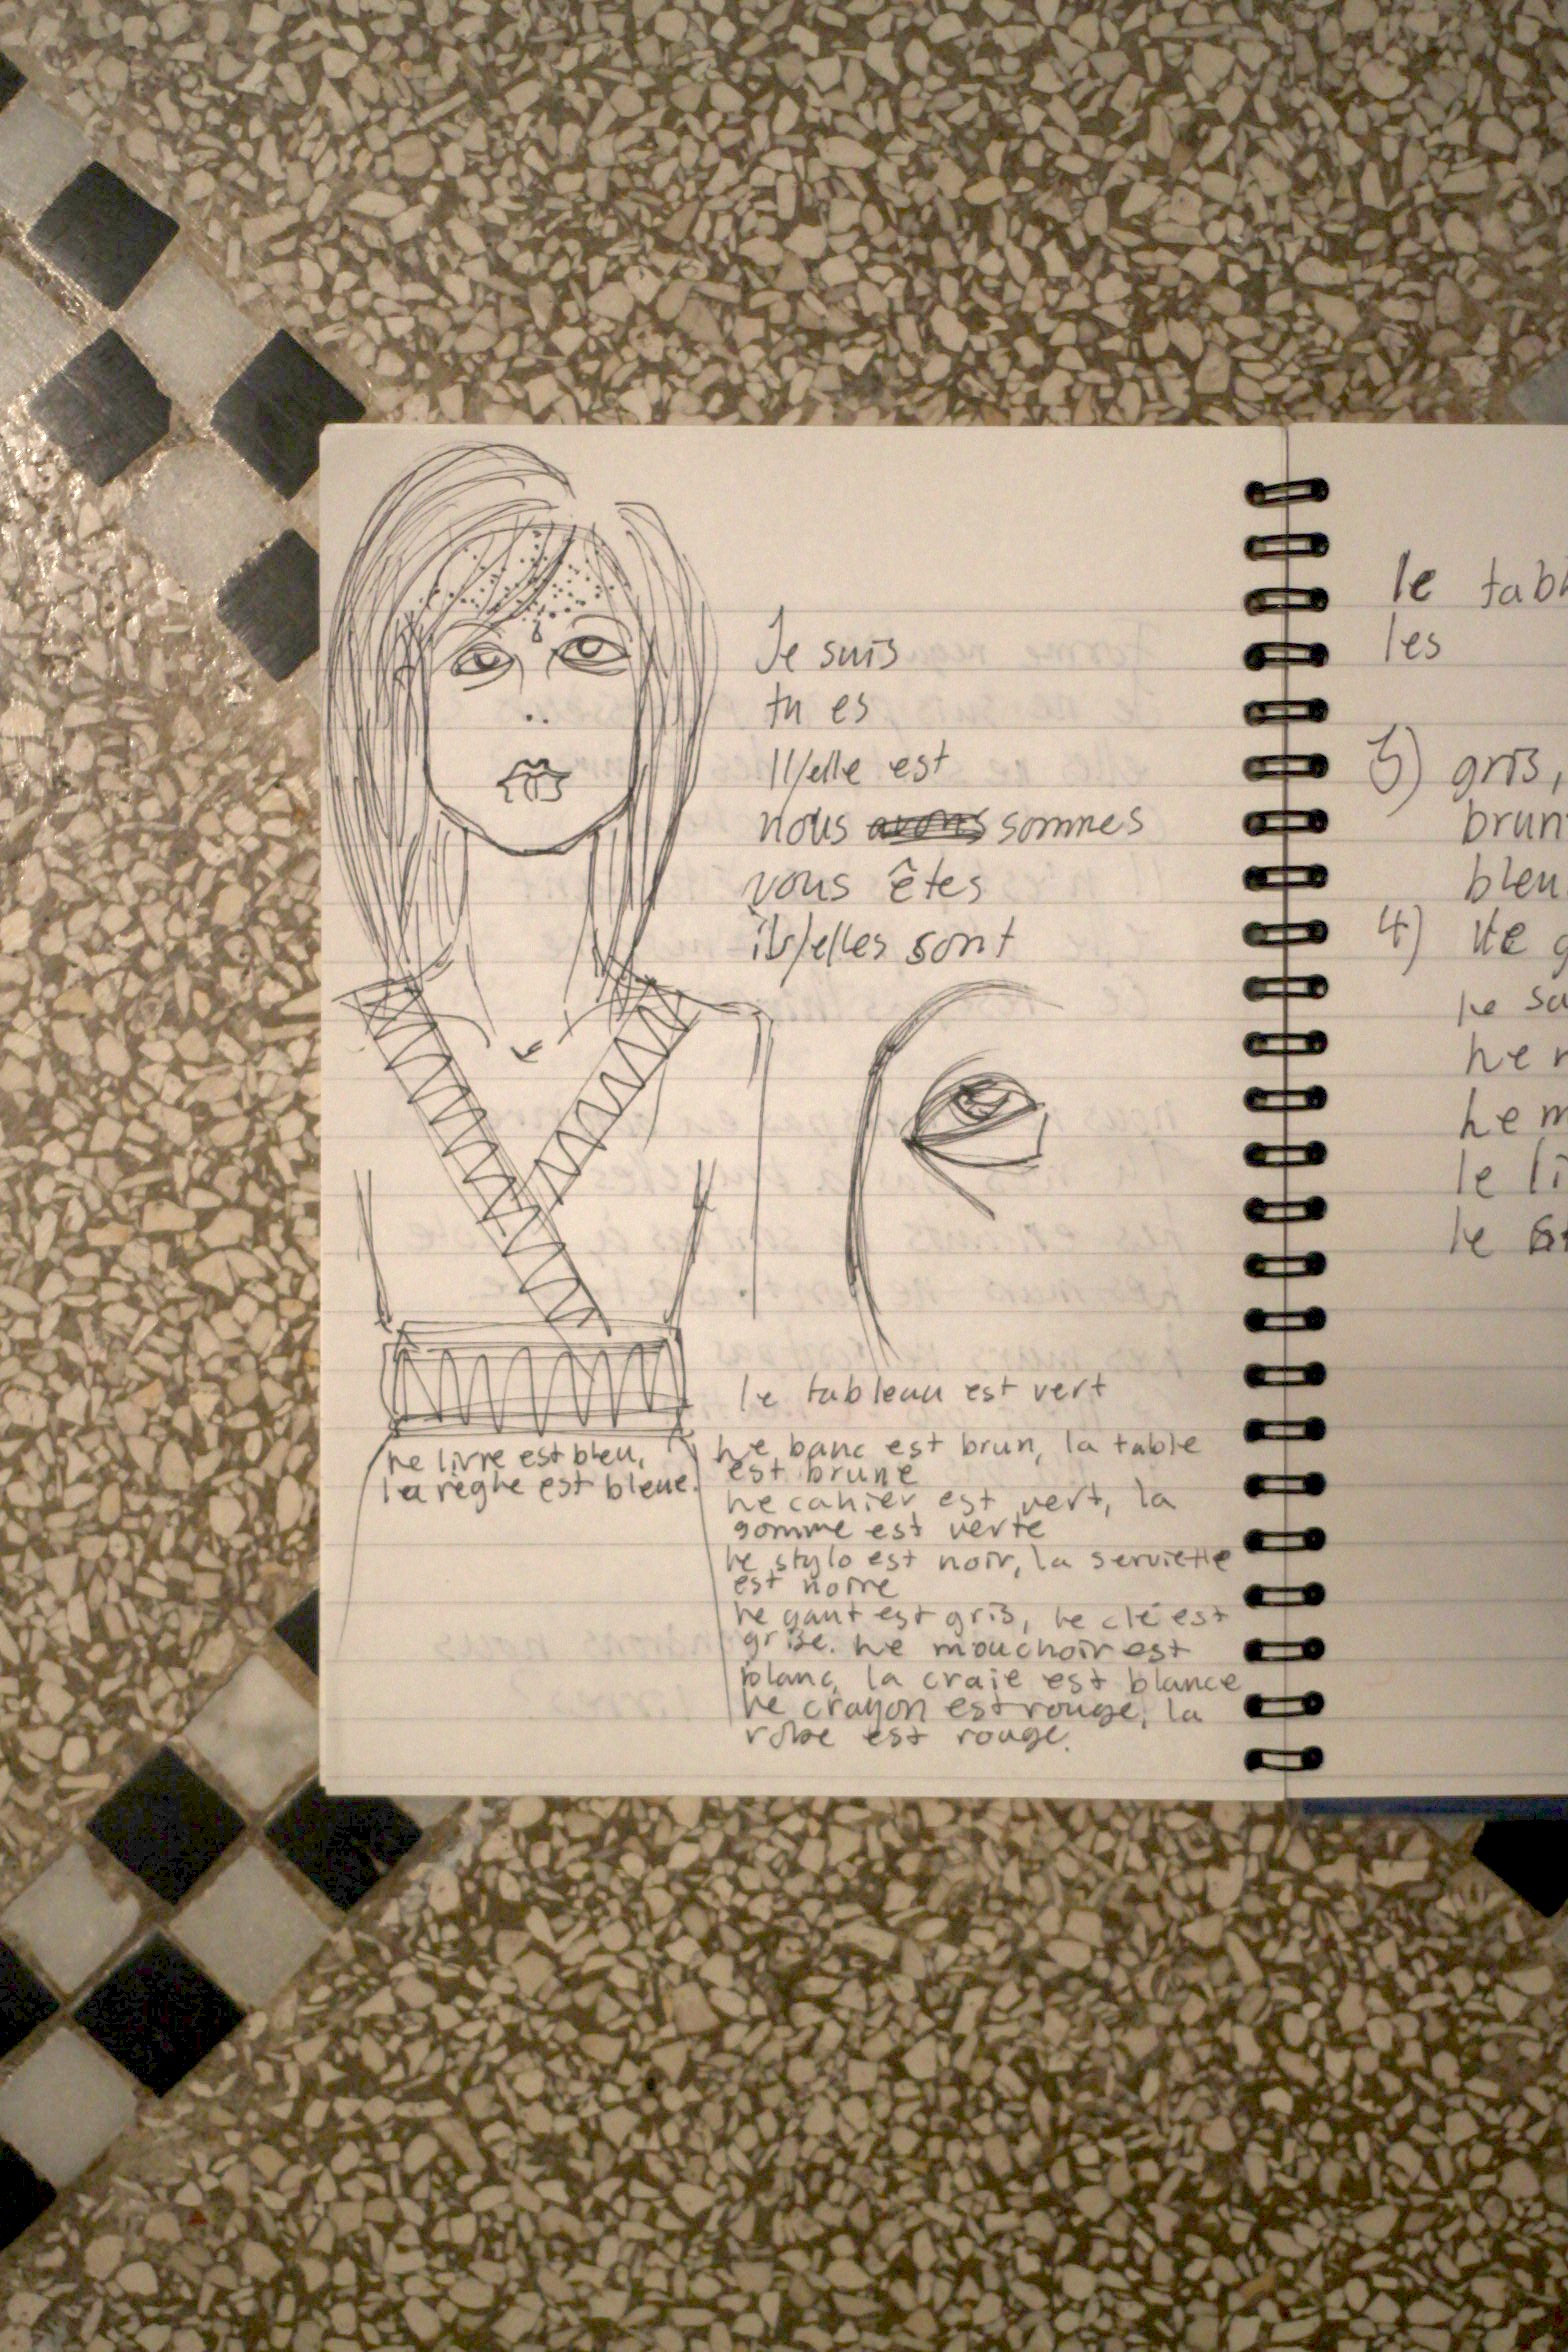 Je suis
tu es
Il/elle est
nous avons sommes
vous êtes
ils/elles sont
le tableau est vert
Le livre est bleu,
la règle est bleue.
Le banc est brun, la table
est brune
Le cahier est vert, la
gomme est verte
Le stylo est noir, la serviette
est noire
Le gant est gris, le clé est
grise. Le mouchoir est
blanc, la craie est blance
Le crayon est rouge, la
robe est rouge.
le tabl
les
3) gris,
brun
bleu
4)
le
le
le
le li
le